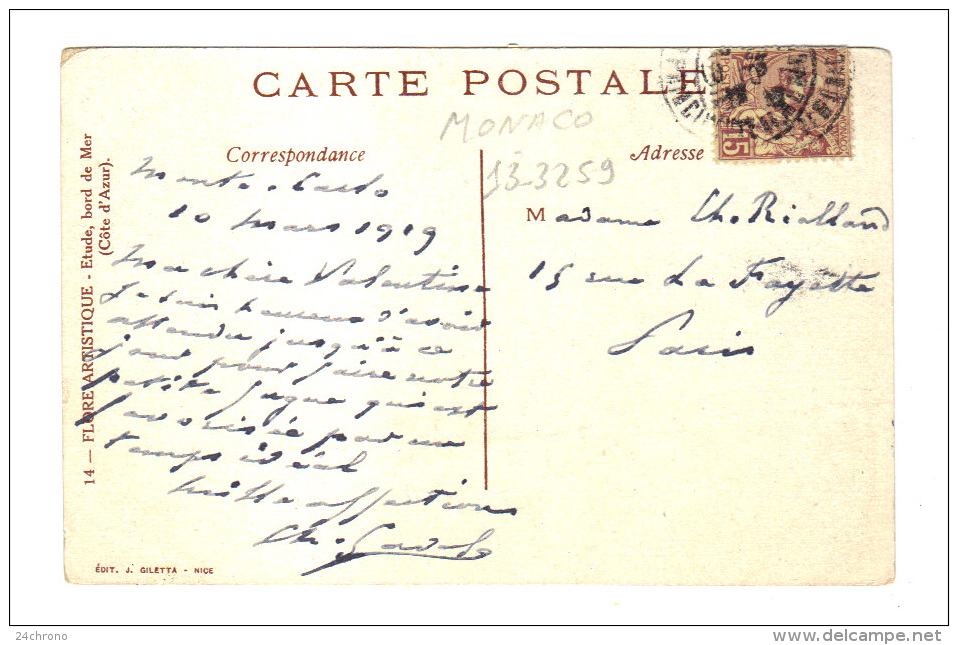 CARTE POSTALE
MONACO
Correspondance
Adresse
133259
14 — FLORE ARTISTIQUE - Etude, bord de Mer
(Côte d'Azur).
15
Monte-Carlo
10 Mars 1919
Ma chère Valentine
Je suis heureux d'avoir
attendu jusqu'à ce
jour pour faire notre
petite fugue qui est
favorisée par un
temps idéal
Mille affections
Ch.
Madame Ch. Rialland
15 rue La Fayette
Paris
ÉDIT. J. GILETTA - NICE
24chrono
www.delcampe.net